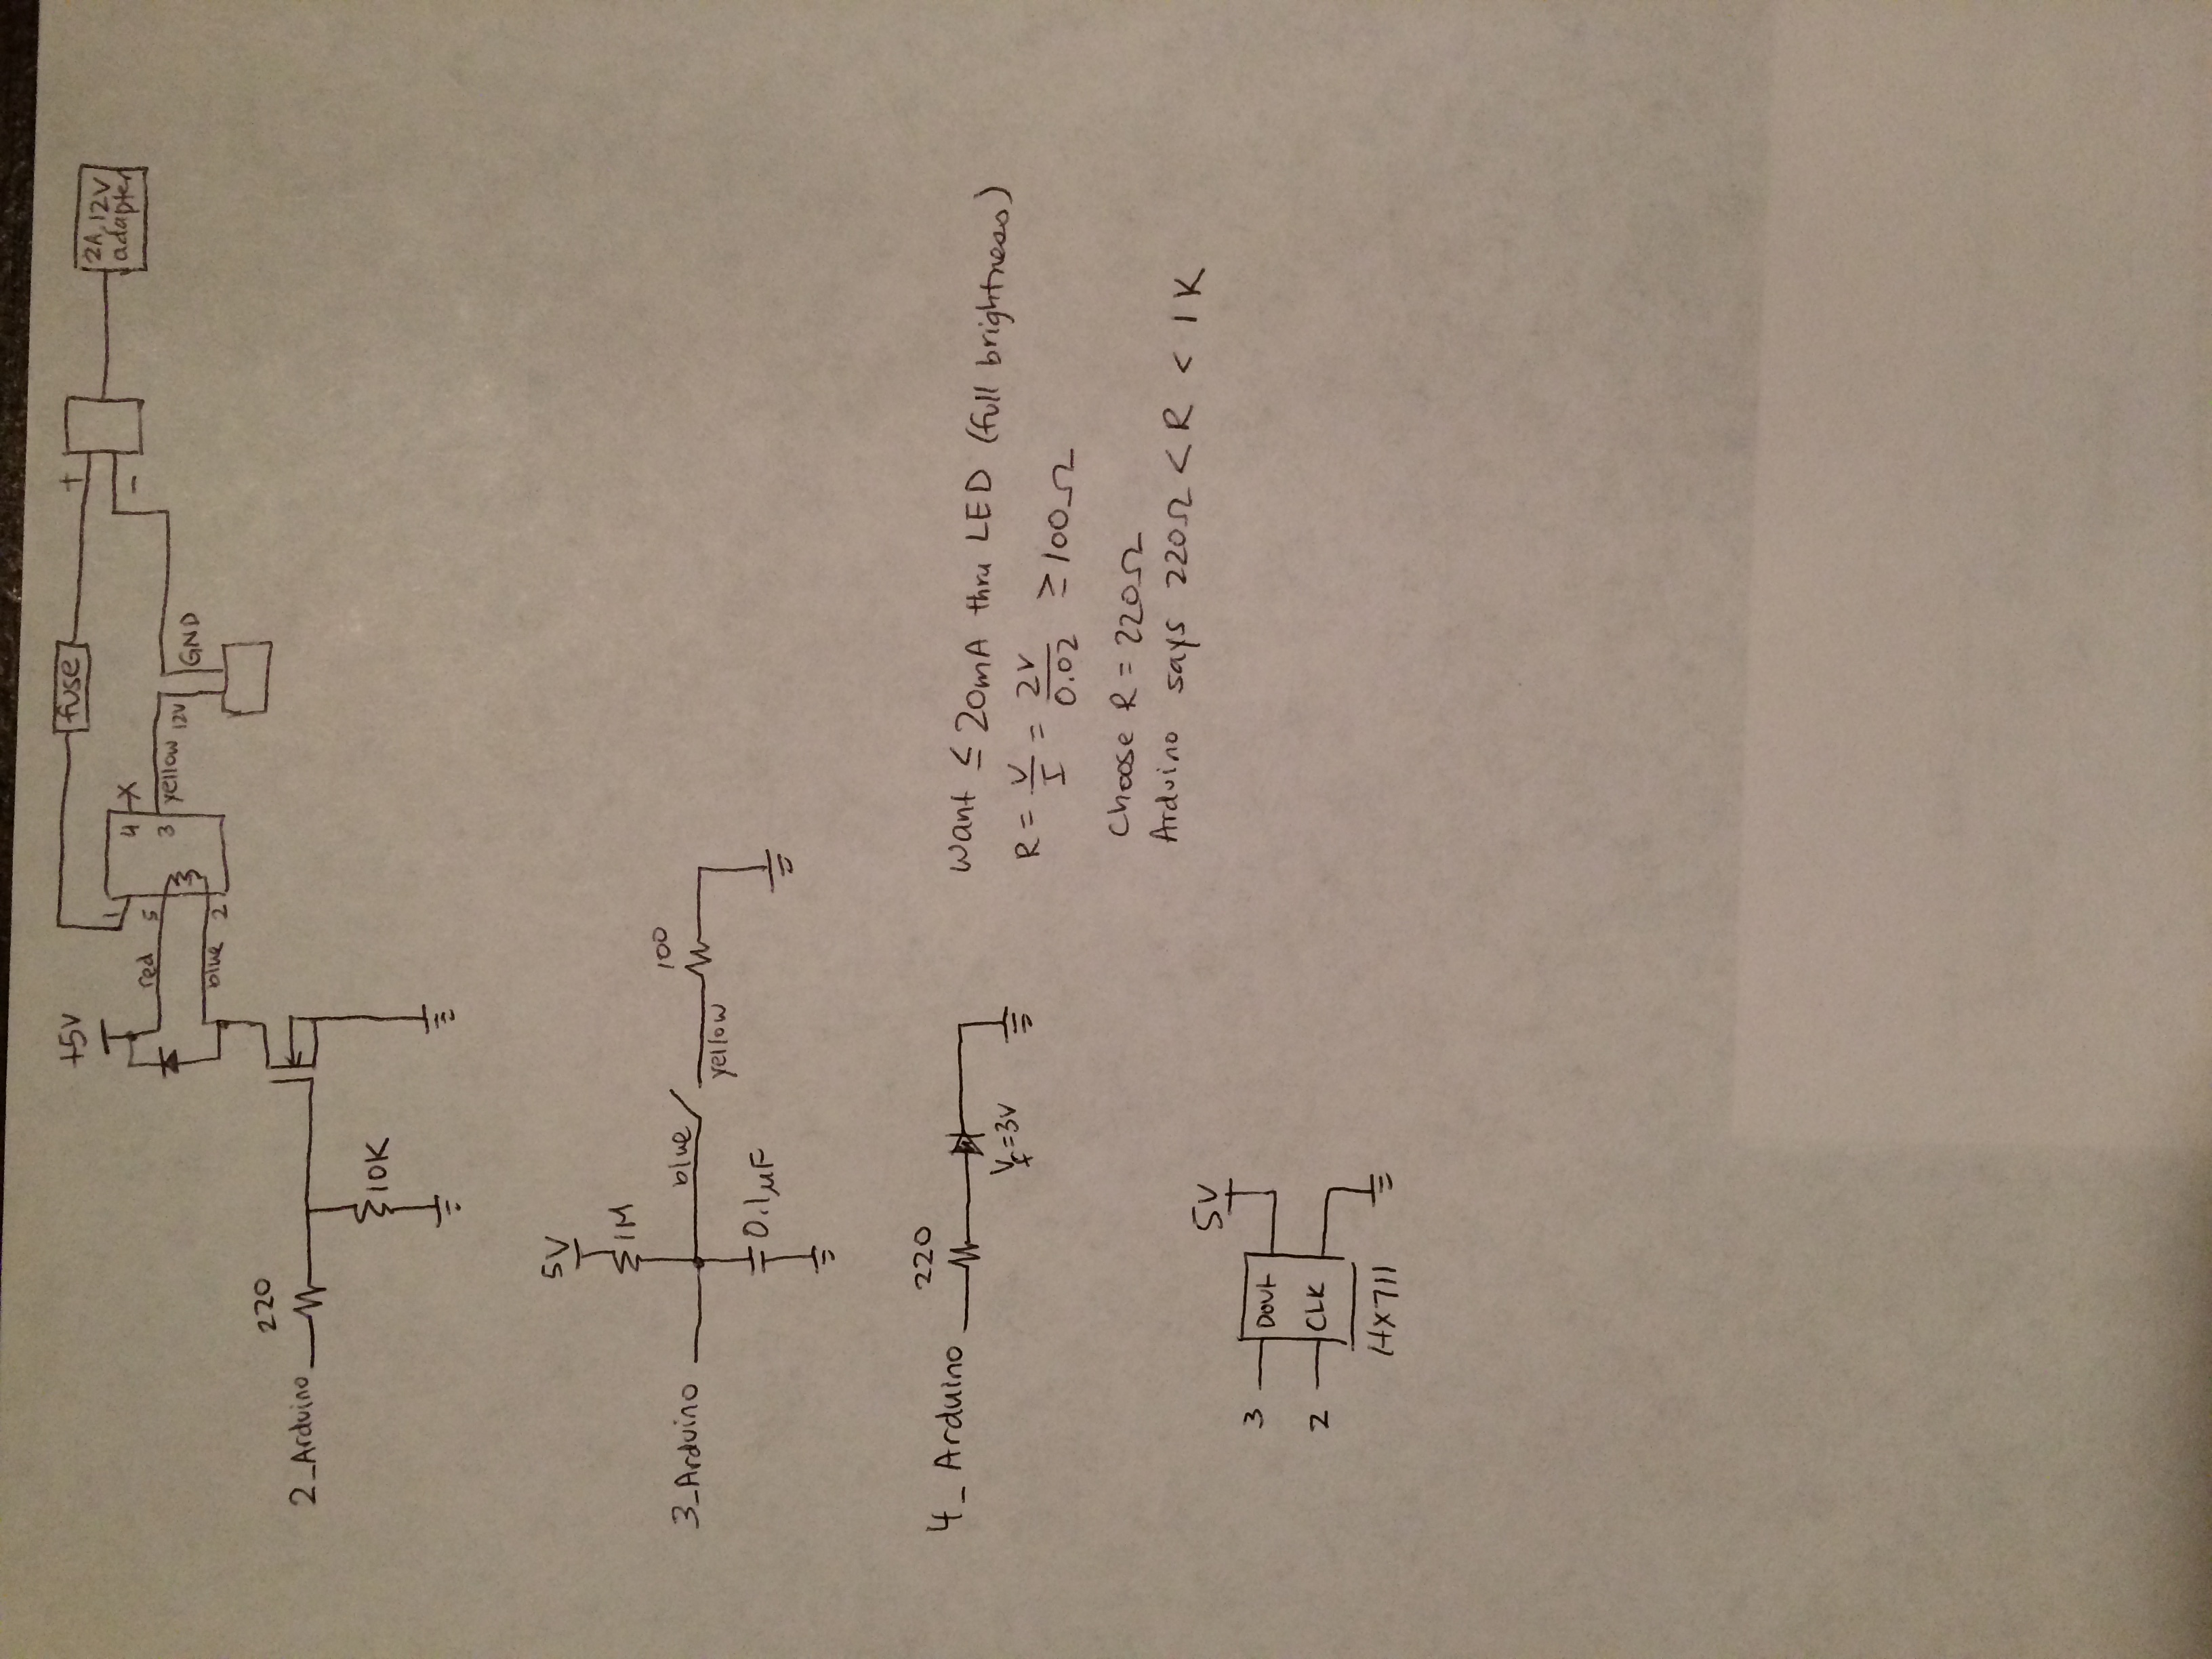 +5V
fuse
+
2A, 12V
adapter
1
4
red
5
3
yellow
12V
−
GND
blue
2
220
2_Arduino
10K
5V
1M
3_Arduino
blue
100
yellow
0.1μF
4_ Arduino
220
Vf=3V
Want ≤ 20mA thru LED (full brightness)
R = V/I = 2V/0.02 ≥ 100Ω
Choose R = 220Ω
Arduino says 220Ω < R < 1K
5V
3
Dout
2
CLK
HX711